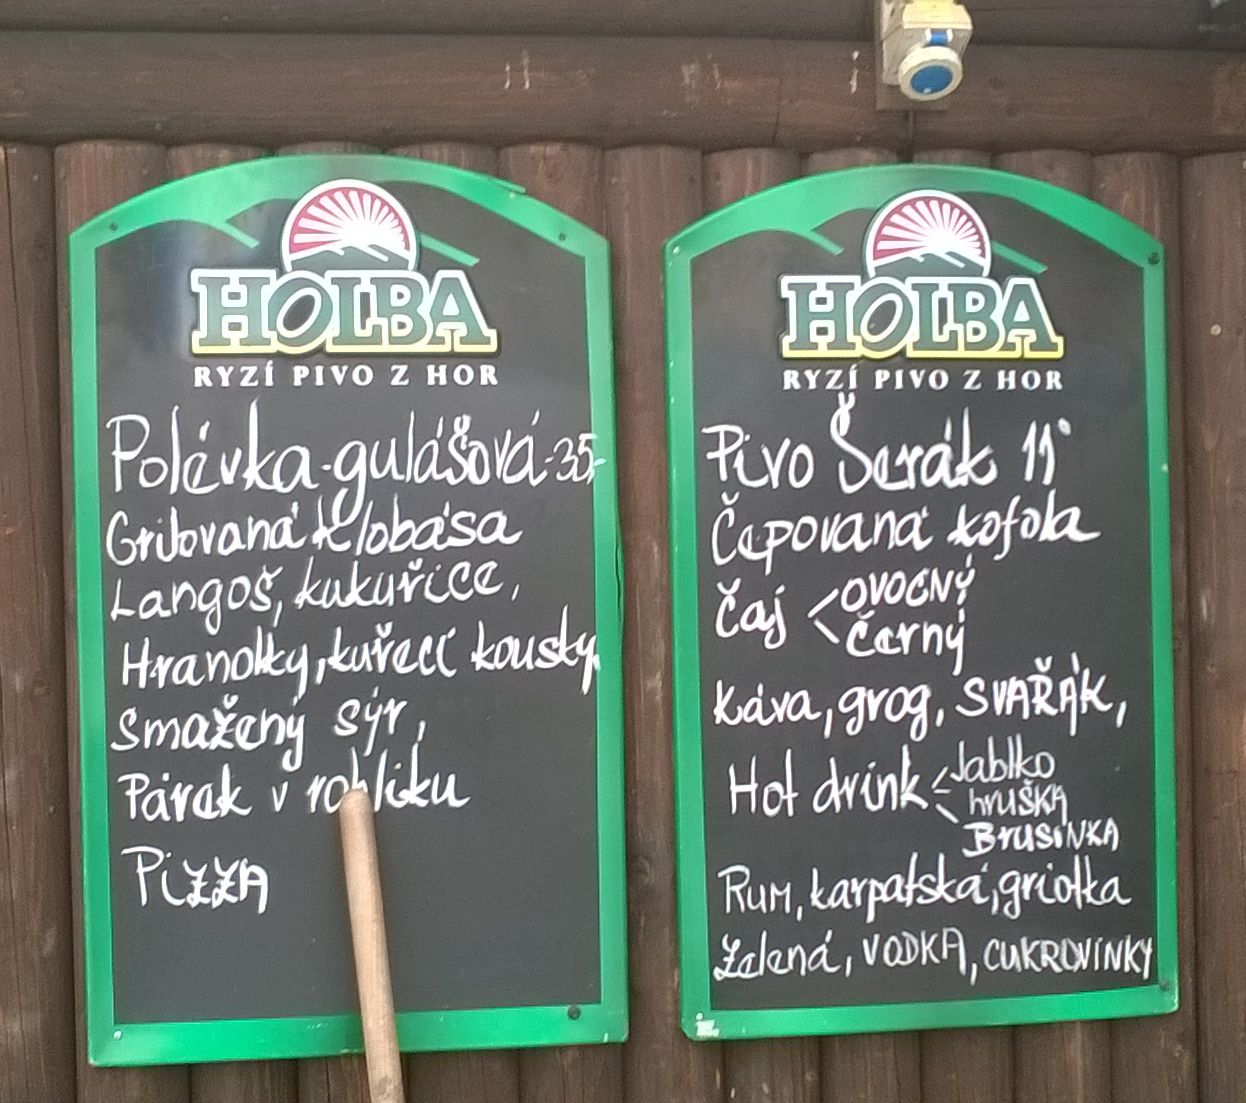 HOLBA
RYZÍ PIVO Z HOR
Polévka-gulášová-35,-
Grilovaná klobása
Langoš, kukuřice,
Hranolky, kuřecí kousky,
Smažený sýr,
Párek v rohlíku
PIZZA
HOLBA
RYZÍ PIVO Z HOR
Pivo Šerák 11°
Čepovaná kofola
Čaj < OVOCNÝ
Černý
Káva, grog, SVAŘÁK,
Hot drink - Jablko
hruŠKA
BRUSINKA
RUM, karpatská, griotka
Zelená, VODKA, CUKROVINKY